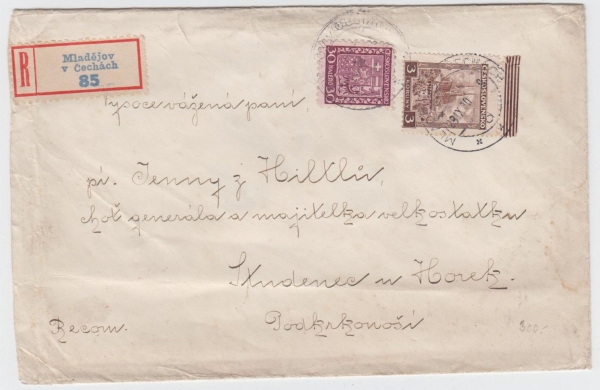 R
Mladějov
v Čechách
85
30
ČESKOSLOVENSKO
3
ČESKOSLOVENSKO
Vysocevážená paní,
pí. Jenny z Hiltlů,
choť generála a majitelka velkostatku
Studenec u Horek.
Recom.
Podkrkonoší
300.-